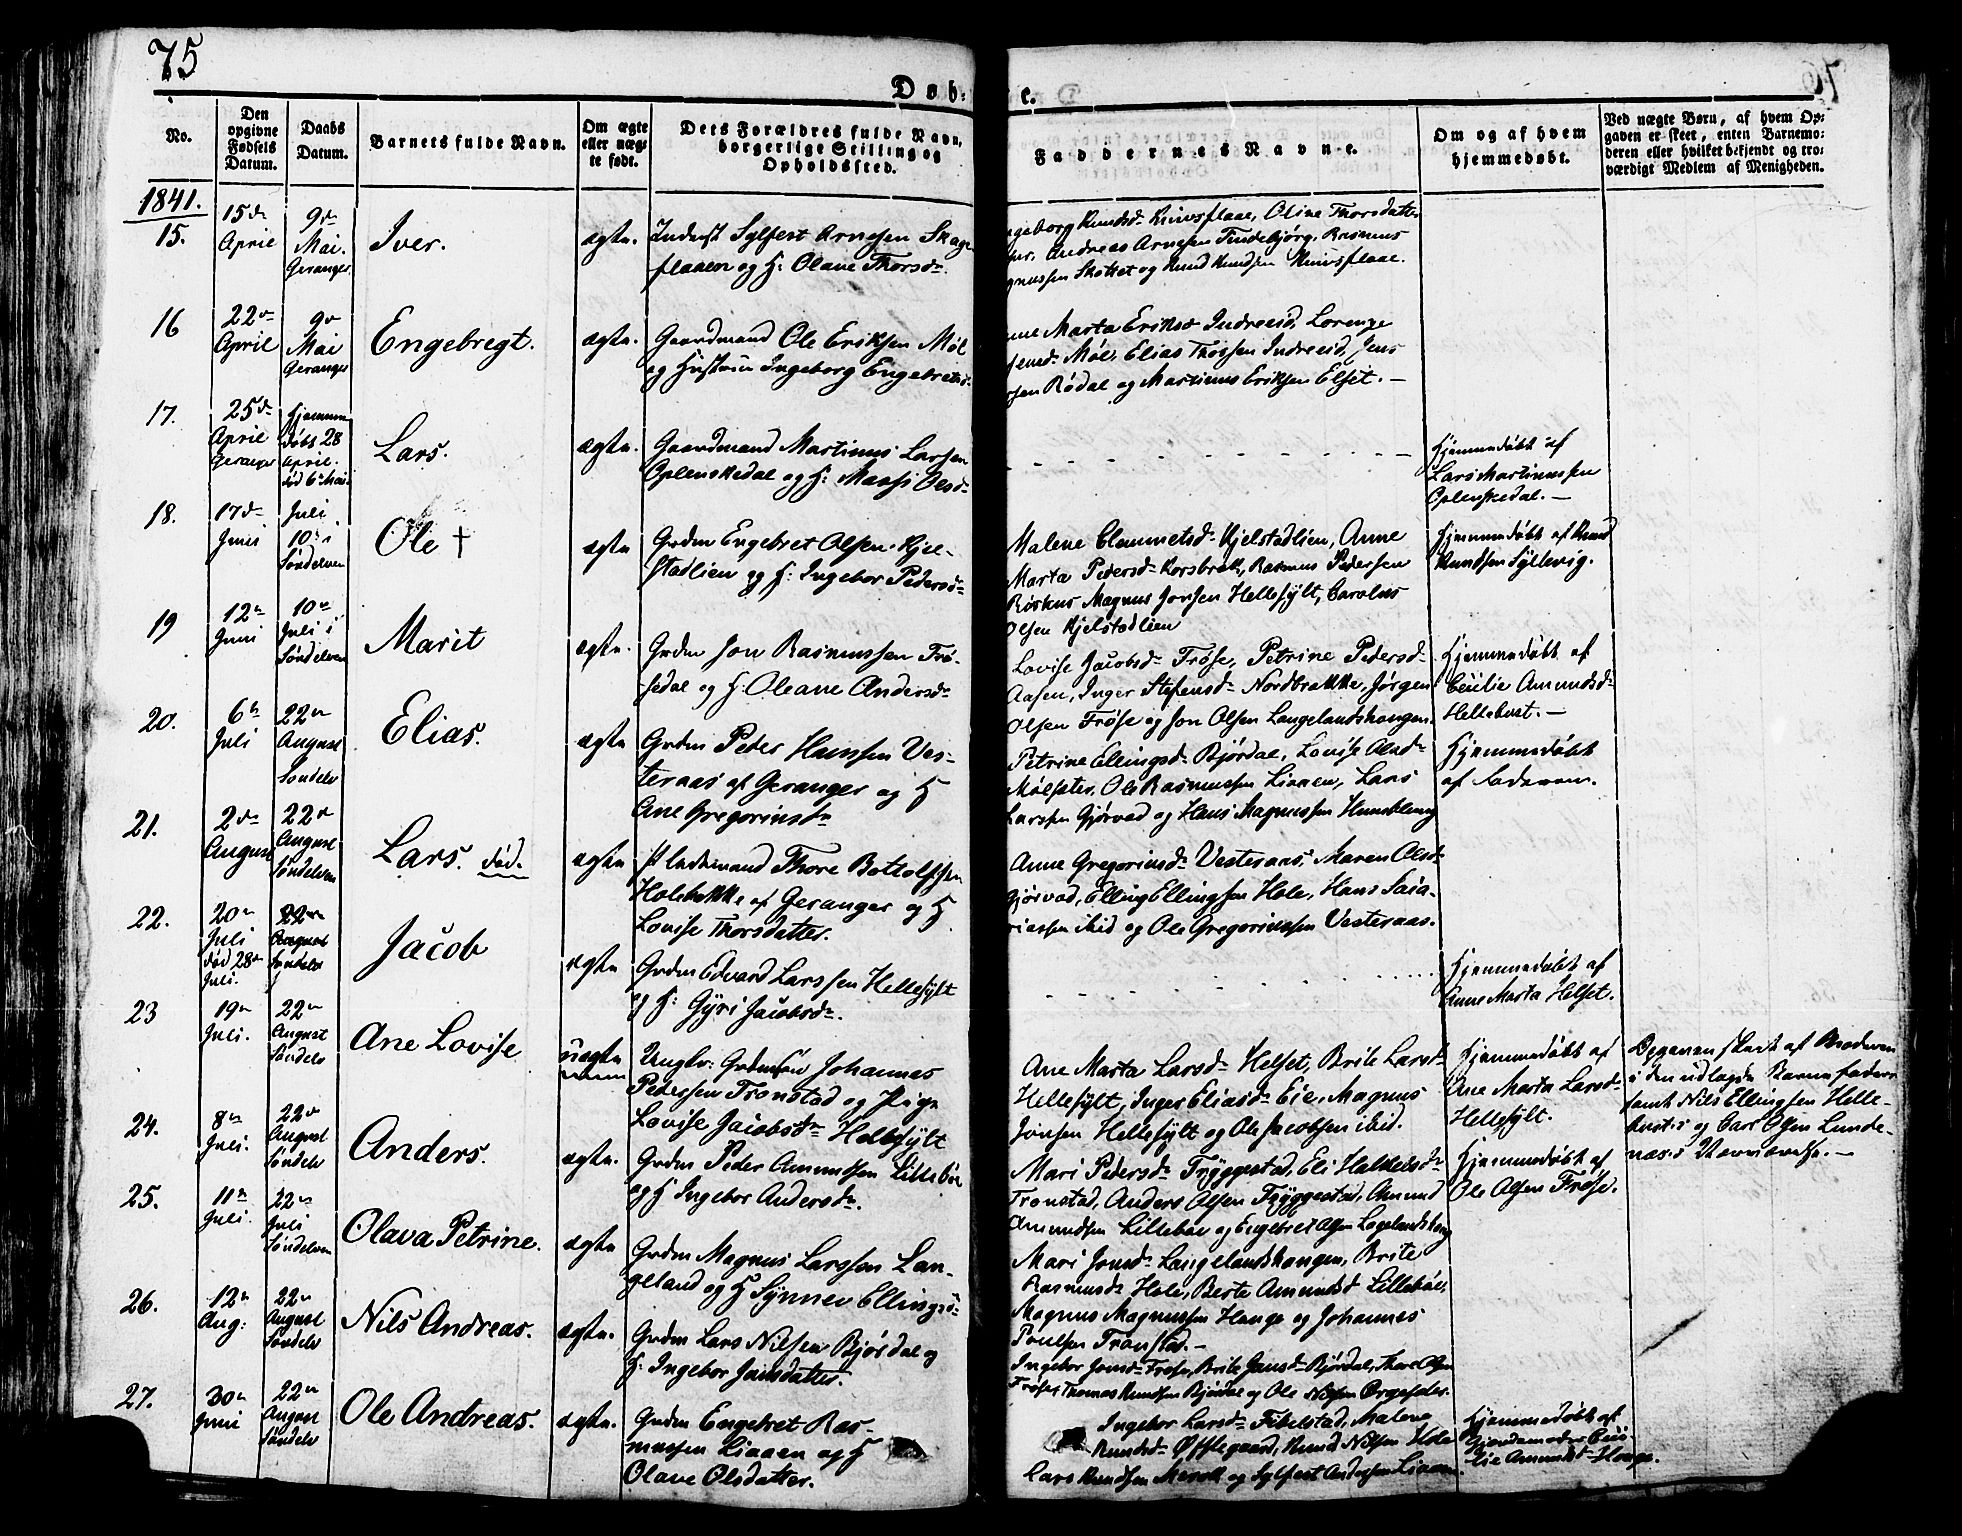 75
76
Døb-
te.
No.
Den opgivne Fødsels Datum.
Daabs Datum.
Barnets fulde Navn.
Om ægte eller uægte født.
Dets Forældres fulde Navn, borgerlige Stilling og Opholdssted.
Faddernes Navne.
Om og af hvem hjemmedøbt.
Ved uægte Børn, af hvem Opgaven er skeet, enten Barnemoderen eller hvilket bekjendt og troværdigt Medlem af Menigheden.
1841.
15.
15de April
9de Mai. Geranger
Iver.
ægte.
Inderst Sylfest Arnesen Skage-
flaaen og H: Olane Thorsd.
Ingeborg Knudsd. Knivsflaae, Oline Thorsdatter
Andreas Arnesen Rasmus
Skottet og Knud Knudsen Knivsflaae.
16
22de April
9de Mai Geranger
Engebregt.
ægte.
Gaardmand Ole Eriksen Møl
og Hustrue Ingeborg Engebretsd.
Marta Eriksd. Indreeid, Lorenze
Jensd. Møl, Elias Indreeid, Jens
Rødal og Martinus Eriksen Elset. —
17.
25de April Geranger
Hjemmedøbt 28 April. død 6te Mai.
Lars.
ægte.
Gaardmand Martinus Larsen
Oplenskedal og H: Olsd.
Hjemmedøbt af
Lars Martinussen
Oplenskedal. —
18.
17de Juni
Juli 10de i Søndelven
Ole †
ægte
Grdm Engebret Olsen Kjel-
stadlien og H: Ingebor Pedersd.
Malene Clemmetsd. Kjelstadlien, Anne
Marta Pedersd. Korsbrekk, Rasmus Pedersen
Røskus Magnus Jonsen Hellesylt, Carolus
Olsen Kjelstadlien
Hjemmedøbt af Knud
Knudsen Syltevig.
19
12te Juni
10de Juli i Søndelven
Marit
ægte.
Grdm Jon Rasmussen Frø-
sedal og H: Oleane Andersd.
Lovise Jacobsd. Frøse, Petrine Pedersd.
Aasen, Inger Stefensd. Nordbrekke, Jørgen
Olsen Frøse og Jon Olsen Langelandshaugen.
Hjemmedøbt af
Cecilie Amundsd.
Hellebost. —
20.
6te Juli
22de August Søndelv
Elias.
ægte
Grdm Peder Hansen Ves-
teraas af Geranger og H
Ane Gregoriusd.
Petrine Ellingsd. Bjørdal, Lovise Olsd.
Mølsæter, Ole Rasmussen Liaaen, Lars
Larssen Gjørvad og Hans Magnussen
Hjemmedøbt
af Faderen.
21.
2de August
22de August Søndelven
Lars. død.
ægte
Thore Bottolfsen
Holebakke af Geranger og H
Lovise Thorsdatter.
Anne Gregoriusd. Vesteraas, Maren Olsd.
Gjørvad, Elling Ellingsen Hole, Hans Saca-
riassen ibid og Ole Gregoriussen Vesteraas.
22.
20de Juli død 28de Juli.
22de August Søndelv
Jacob
ægte
Grdm Edvard Larssen Hellesylt
og H: Gyri Jacobsd.
Hjemmedøbt af
Anne Marta Helset.
23
19de Juli.
22de August Søndelv
Ane Lovise
uægte
Ungkr: Grdmsøn Johannes
Pedersen Tronstad og Pige
Lovise Jacobsd. Hellesylt
Ane Marta Larsd. Helset, Brite Larsd.
Hellesylt, Inger Eliasd. Eie, Magnus
Jonsen Hellesylt og Ole Jacobsen ibid.
Hjemmedøbt af
Ane Marta Larsd.
Hellesylt.
Opgaven skeet af Moderen
i den udlagde Barnefaders
samt Nils Ellingsen Helle-
og Lars Olsen Lunde-
næs's Nærværelse. —
24.
8de Juli.
22de August Søndelv
Anders.
ægte.
Grdm Peder Amundsen Lillebøe
og H Ingebor Andersd.
Mari Pedersd. Tryggestad, Eli Halstensd.
Tronstad, Anders Olsen Tryggestad, Amund
Amundsen Lillebøe og Engebret Olsen Langelandshaug
Hjemmedøbt af
Ole Olsen Frøse.
25.
11te Juli.
22de Juli Søndelven
Olava Petrine.
ægte
Grdm Magnus Larssen Lan-
geland og H Synnev Ellingsd.
Mari Jonsd. Langelandshaugen, Brite
Rasmusd. Hole, Berte Amundsd. Lillebøe,
Magnus Magnussen Hauge og Johannes
Poulsen Tronstad. —
26.
12te Aug:
22de August Søndelv
Nils Andreas.
ægte.
Grdm Lars Nilsen Bjørdal og
H: Ingebor Jonsdatter.
Ingebor Jonsd. Frøse, Brite Jonsd. Bjørdal, Thore Olsen
Frøse, Thomas Knudsen Bjørdal og Ole Nilsen
27.
30te Juni
22de August Søndelv
Ole Andreas.
ægte.
Grdm Engebret Ras-
mussen Liaaen og H
Olave Olsdatter.
Ingebor Larsd. Fibelstad, Malene
Knudsd. Øfstegaard, Knud Nilsen Hole
Lars Knudsen Merok og Sylfest Andersen Liaaen.
Hjemmedøbt af
Gjordemoder Ceci-
lie Amundsd. Hauge.